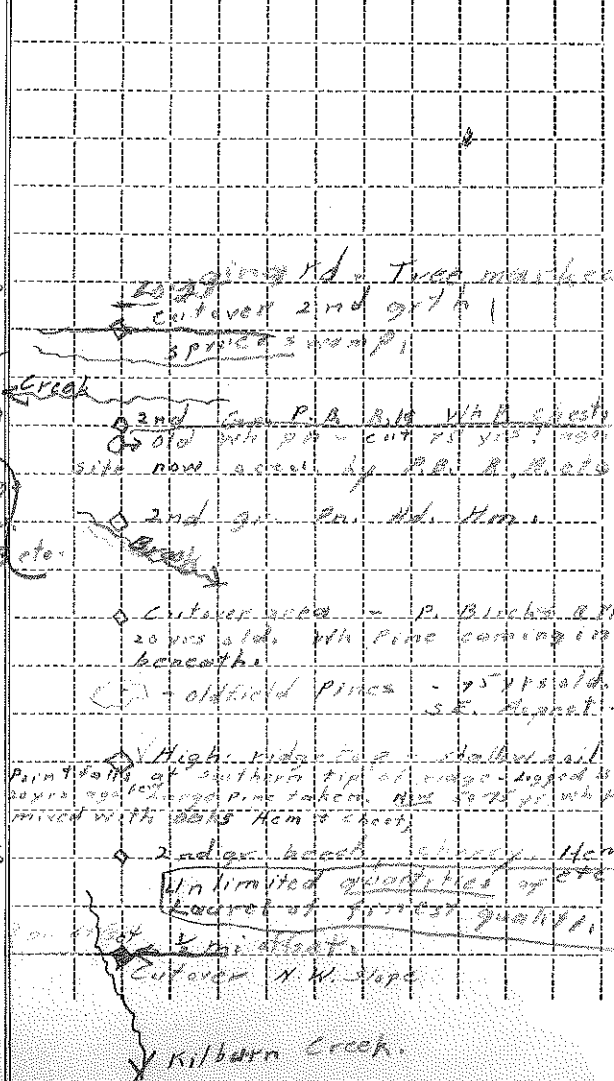 ging rd - Tree marked
20-25
cutover 2nd grth
spruce swamp,
Creek
2nd P.B. Wh B. chest
old Wh pn - cut 75 yrs. ago
site now by P.B. R.M. etc
2nd gr. Pn. Hd. Hm.
Brook
etc.
Cutover area - P. Birch &
20 yrs old. Wh Pine coming in
beneath.
- oldfield Pines - 75 yrs old.
S.E.
High ridge top - shallow soil
Point falls at southern tip of ridge - Logged
20 yrs ago few large Pine taken. Now 50-75 yr Wh
mixed with oaks Hem & chest,
2nd gr beech, cherry, Hem
etc
Unlimited quantities of
Laurel of finest quality.
1/2 mi offset.
Cutover N.W. slope
Kilburn Creek.